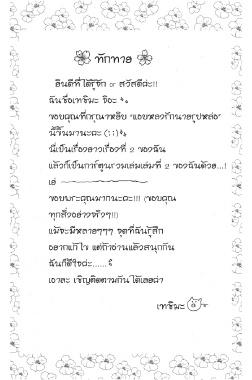 ทักทาย
ยินดีที่ได้รู้จัก or สวัสดีค่ะ!!
ฉันชื่อเทชิมะ จิอะ
ขอบคุณที่กรุณาหยิบ "แอบหลงรักนายรูปหล่อ"
นี้ขึ้นมานะคะ (; ;)
นี่เป็นเรื่องยาวเรื่องที่ 2 ของฉัน
แล้วก็เป็นการ์ตูนรวมเล่มเล่มที่ 2 ของฉันด้วย...!
เย่
ขอบพระคุณมากนะคะ!!! (ขอบคุณ
ทุกสิ่งอย่างจริงๆ!!)
แม้จะมีหลายๆๆๆ จุดที่ฉันรู้สึก
อยากแก้ไข แต่ถ้าอ่านแล้วสนุกกัน
ฉันก็ดีใจค่ะ......
เอาละ เชิญติดตามกันได้เลยค่า
เทชิมะ